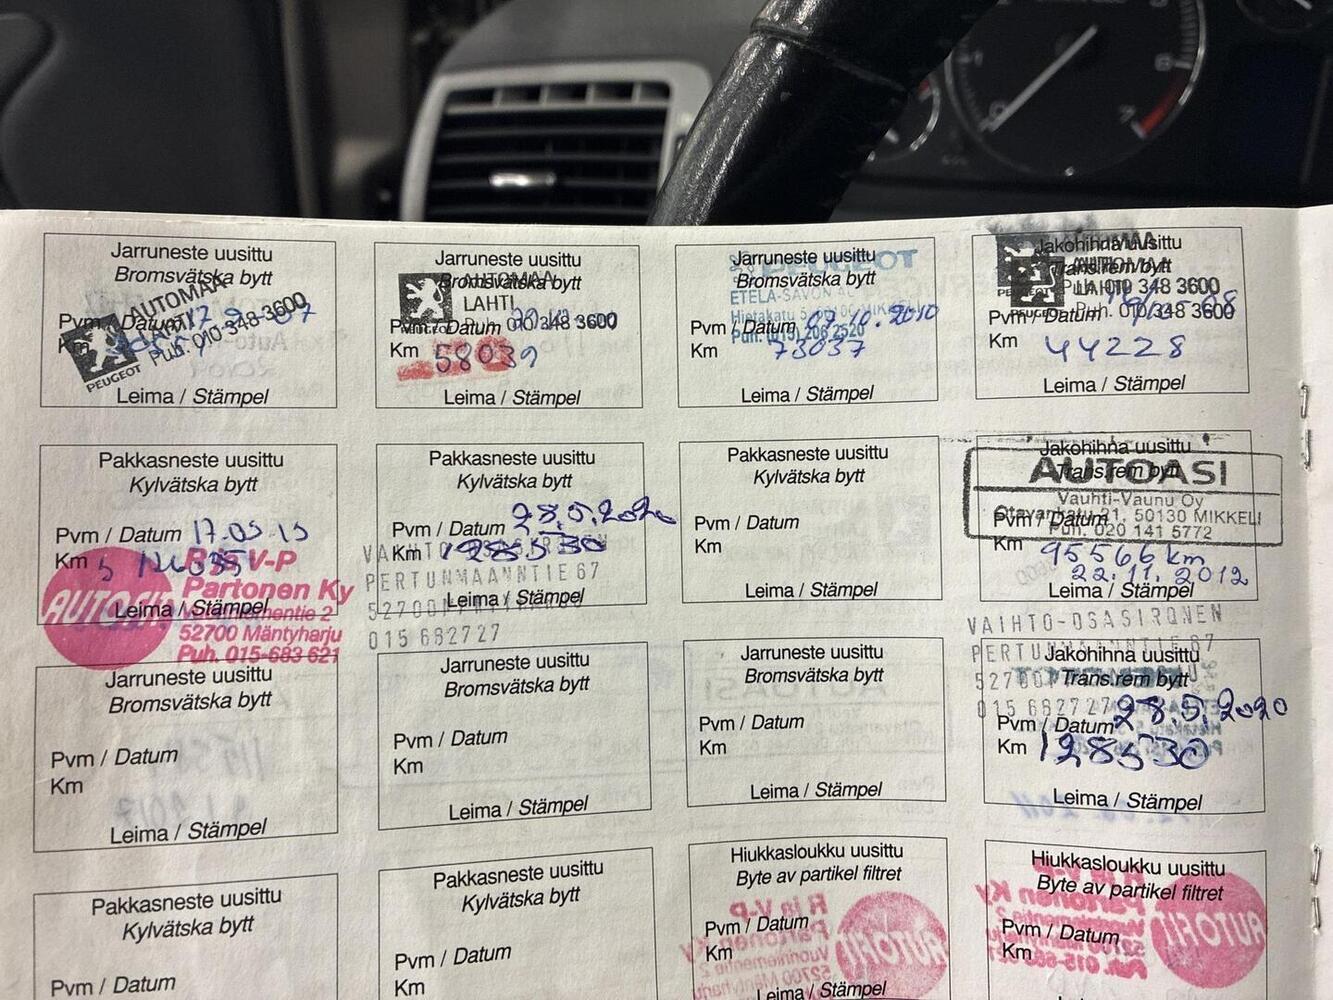 Jarruneste uusittu
Bromsvätska bytt
AUTOMAA
LAHTI
Puh. 010-348-3600
Pvm / Datum
Km
PEUGEOT
Leima / Stämpel
Jarruneste uusittu
Bromsvätska bytt
AUTOMAA
LAHTI
Pvm / Datum 010 348 3600
PEUGEOT
Km 58039
Leima / Stämpel
Jarruneste uusittu
Bromsvätska bytt
PEUGEOT
ETELÄ-SAVON AC
Hietakatu MIKKELI
Pvm / Datum 07.10.2010
Puh. (015) 206 2520
Km 73037
Leima / Stämpel
Jakohihna uusittu
Trans.rem bytt
AUTOMAA
LAHTI
Puh. 010 348 3600
PEUGEOT
Pvm / Datum
Km 44228
Leima / Stämpel
Pakkasneste uusittu
Kylvätska bytt
Pvm / Datum 17.05.13
Km
R ja V-P
Partonen Ky
AUTOFIT
Leima / Stämpel
Vuorilammentie 2
52700 Mäntyharju
Puh. 015-683 621
Pakkasneste uusittu
Kylvätska bytt
Pvm / Datum 28.5.2020
Km 128530
PERTUNMAANTIE 67
Leima / Stämpel
015 682727
Pakkasneste uusittu
Kylvätska bytt
Pvm / Datum
Km
Leima / Stämpel
Jakohihna uusittu
Trans.rem bytt
AUTOASI
Vauhti-Vaunu Oy
Otavankatu 21, 50130 MIKKELI
Pvm / Datum
Puh. 020 141 5772
Km 95566 km
22.11.2012
Leima / Stämpel
Jarruneste uusittu
Bromsvätska bytt
Pvm / Datum
Km
Leima / Stämpel
Jarruneste uusittu
Bromsvätska bytt
Pvm / Datum
Km
Leima / Stämpel
Jarruneste uusittu
Bromsvätska bytt
Pvm / Datum
Km
Leima / Stämpel
VAIHTO-OSASIRONEN
PERTUNMAANTIE 67
Jakohihna uusittu
Trans.rem bytt
015 682727
Pvm / Datum 28.5.2020
Km 128530
Leima / Stämpel
Pakkasneste uusittu
Kylvätska bytt
Pvm / Datum
Pakkasneste uusittu
Kylvätska bytt
Pvm / Datum
Km
Hiukkasloukku uusittu
Byte av partikel filtret
Pvm / Datum
Km
Leima / Stämpel
Hiukkasloukku uusittu
Byte av partikel filtret
Pvm / Datum
Km